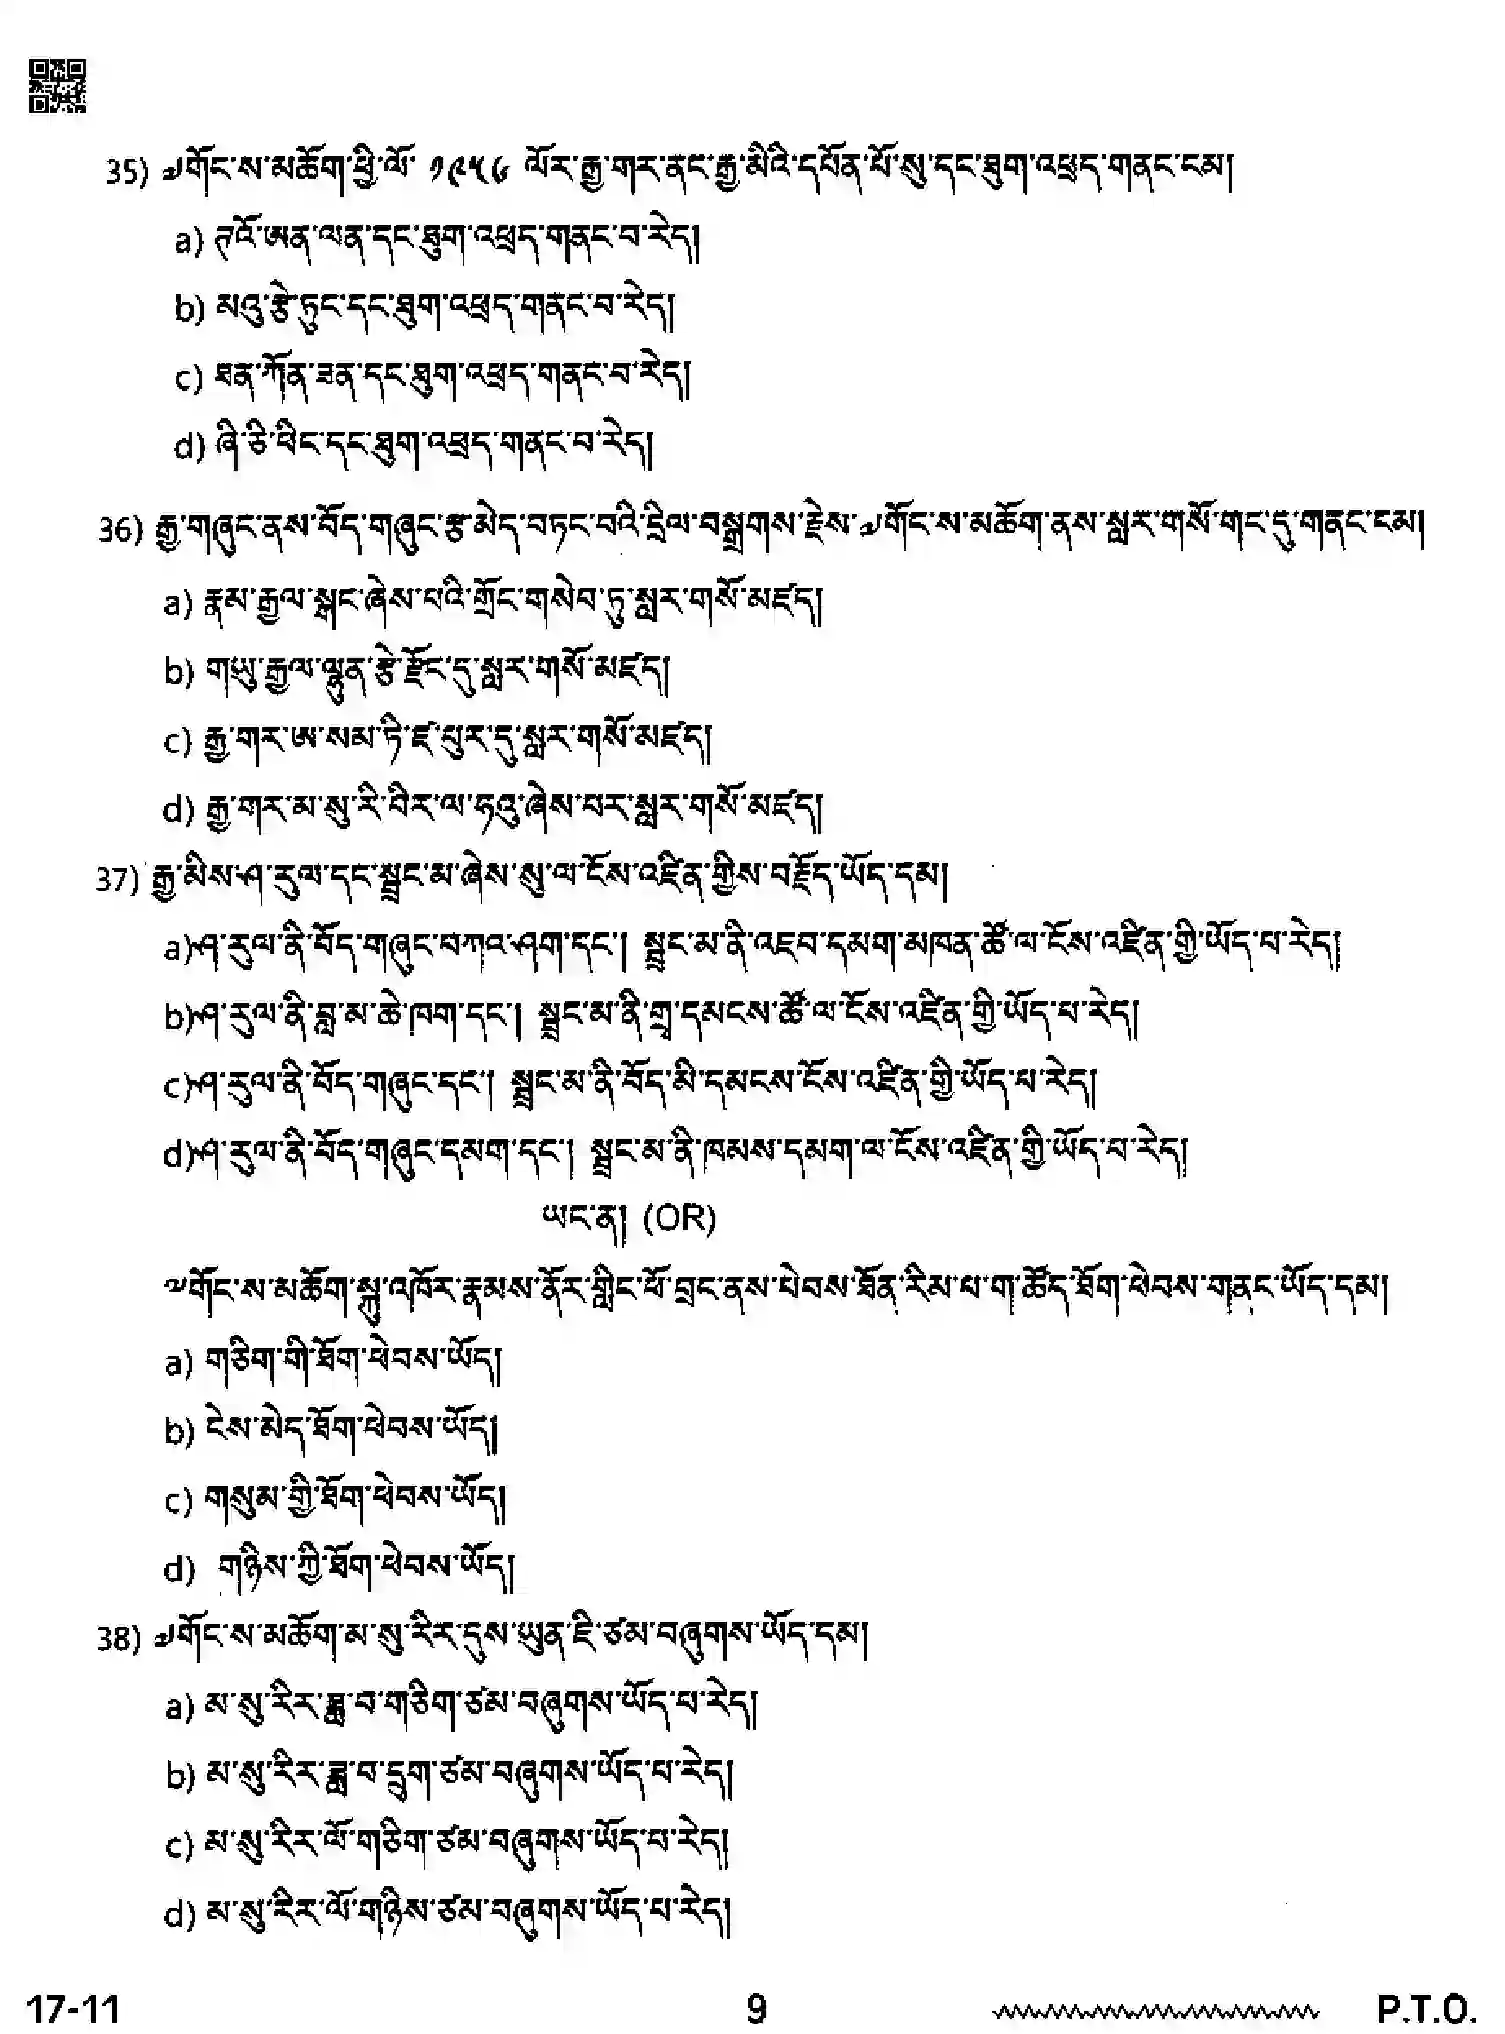 35) ༧གོང་ས་མཆོག་ཕྱི་ལོ་ ༡༩༥༦ ལོར་རྒྱ་གར་ནང་རྒྱ་མིའི་དཔོན་པོ་སུ་དང་ཐུག་འཕྲད་གནང་ངམ།
a) ཀྲའོ་ཨན་ལན་དང་ཐུག་འཕྲད་གནང་བ་རེད།
b) མའུ་རྩེ་ཏུང་དང་ཐུག་འཕྲད་གནང་བ་རེད།
c) ཐན་ཀོན་ཟན་དང་ཐུག་འཕྲད་གནང་བ་རེད།
d) ཞི་ཅི་ཕིང་དང་ཐུག་འཕྲད་གནང་བ་རེད།
36) རྒྱ་གཞུང་ནས་བོད་གཞུང་རྩ་མེད་བཏང་བའི་དྲིལ་བསྒྲགས་རྗེས་༧གོང་ས་མཆོག་ནས་སླར་གསོ་གང་དུ་གནང་ངམ།
a) རྣམ་རྒྱལ་སྒང་ཞེས་པའི་གྲོང་གསེབ་ཏུ་སླར་གསོ་མཛད།
b) གཡུ་རྒྱལ་ལྷུན་རྩེ་རྫོང་དུ་སླར་གསོ་མཛད།
c) རྒྱ་གར་ཨ་སམ་ཏི་ཛ་པུར་དུ་སླར་གསོ་མཛད།
d) རྒྱ་གར་མ་སུ་རི་བིར་ལ་ཧའུ་ཞེས་པར་སླར་གསོ་མཛད།
37) རྒྱ་མིས་ཤ་རུལ་དང་སྦྲང་མ་ཞེས་སུ་ལ་ངོས་འཛིན་གྱིས་བརྗོད་ཡོད་དམ།
a) ཤ་རུལ་ནི་བོད་གཞུང་བཀའ་ཤག་དང་། སྦྲང་མ་ནི་འཇབ་དམག་མཁན་ཚོ་ལ་ངོས་འཛིན་གྱི་ཡོད་པ་རེད།
b) ཤ་རུལ་ནི་བླ་མ་ཆེ་ཁག་དང་། སྦྲང་མ་ནི་གྲྭ་དམངས་ཚོ་ལ་ངོས་འཛིན་གྱི་ཡོད་པ་རེད།
c) ཤ་རུལ་ནི་བོད་གཞུང་དང་། སྦྲང་མ་ནི་བོད་མི་དམངས་ངོས་འཛིན་གྱི་ཡོད་པ་རེད།
d) ཤ་རུལ་ནི་བོད་གཞུང་དམག་དང་། སྦྲང་མ་ནི་ཁམས་དམག་ལ་ངོས་འཛིན་གྱི་ཡོད་པ་རེད།
ཡང་ན། (OR)
༧གོང་ས་མཆོག་སྐུ་འཁོར་རྣམས་ནོར་གླིང་ཕོ་བྲང་ནས་པེབས་ཐོན་རིམ་པ་ག་ཚོད་ཐོག་ཕེབས་གནང་ཡོད་དམ།
a) གཅིག་གི་ཐོག་ཕེབས་ཡོད།
b) ངེས་མེད་ཐོག་ཕེབས་ཡོད།
c) གསུམ་གྱི་ཐོག་ཕེབས་ཡོད།
d) གཉིས་ཀྱི་ཐོག་ཕེབས་ཡོད།
38) ༧གོང་ས་མཆོག་མ་སུ་རིར་དུས་ཡུན་ཇི་ཙམ་བཞུགས་ཡོད་དམ།
a) མ་སུ་རིར་ཟླ་བ་གཅིག་ཙམ་བཞུགས་ཡོད་པ་རེད།
b) མ་སུ་རིར་ཟླ་བ་དྲུག་ཙམ་བཞུགས་ཡོད་པ་རེད།
c) མ་སུ་རིར་ལོ་གཅིག་ཙམ་བཞུགས་ཡོད་པ་རེད།
d) མ་སུ་རིར་ལོ་གཉིས་ཙམ་བཞུགས་ཡོད་པ་རེད།
17-11 9 P.T.O.